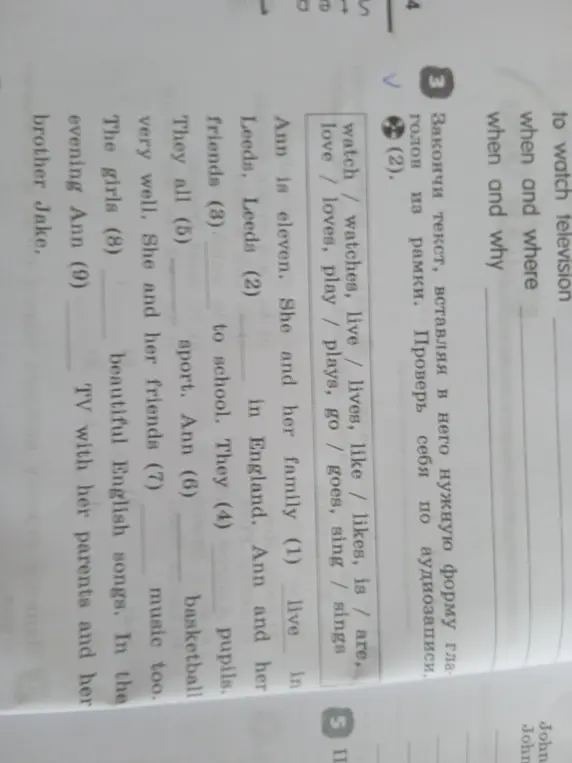 to watch television
when and where
when and why
3 Закончи текст, вставляя в него нужную форму гла-
голов из рамки. Проверь себя по аудиозаписи,
(2).
watch / watches, live / lives, like / likes, is / are,
love / loves, play / plays, go / goes, sing / sings
Ann is eleven. She and her family (1) live in
Leeds. Leeds (2) ____ in England. Ann and her
friends (3) ____ to school. They (4) ____ pupils.
They all (5) ____ sport. Ann (6) ____ basketball
very well. She and her friends (7) ____ music too.
The girls (8) ____ beautiful English songs. In the
evening Ann (9) ____ TV with her parents and her
brother Jake.
4
5
John
John